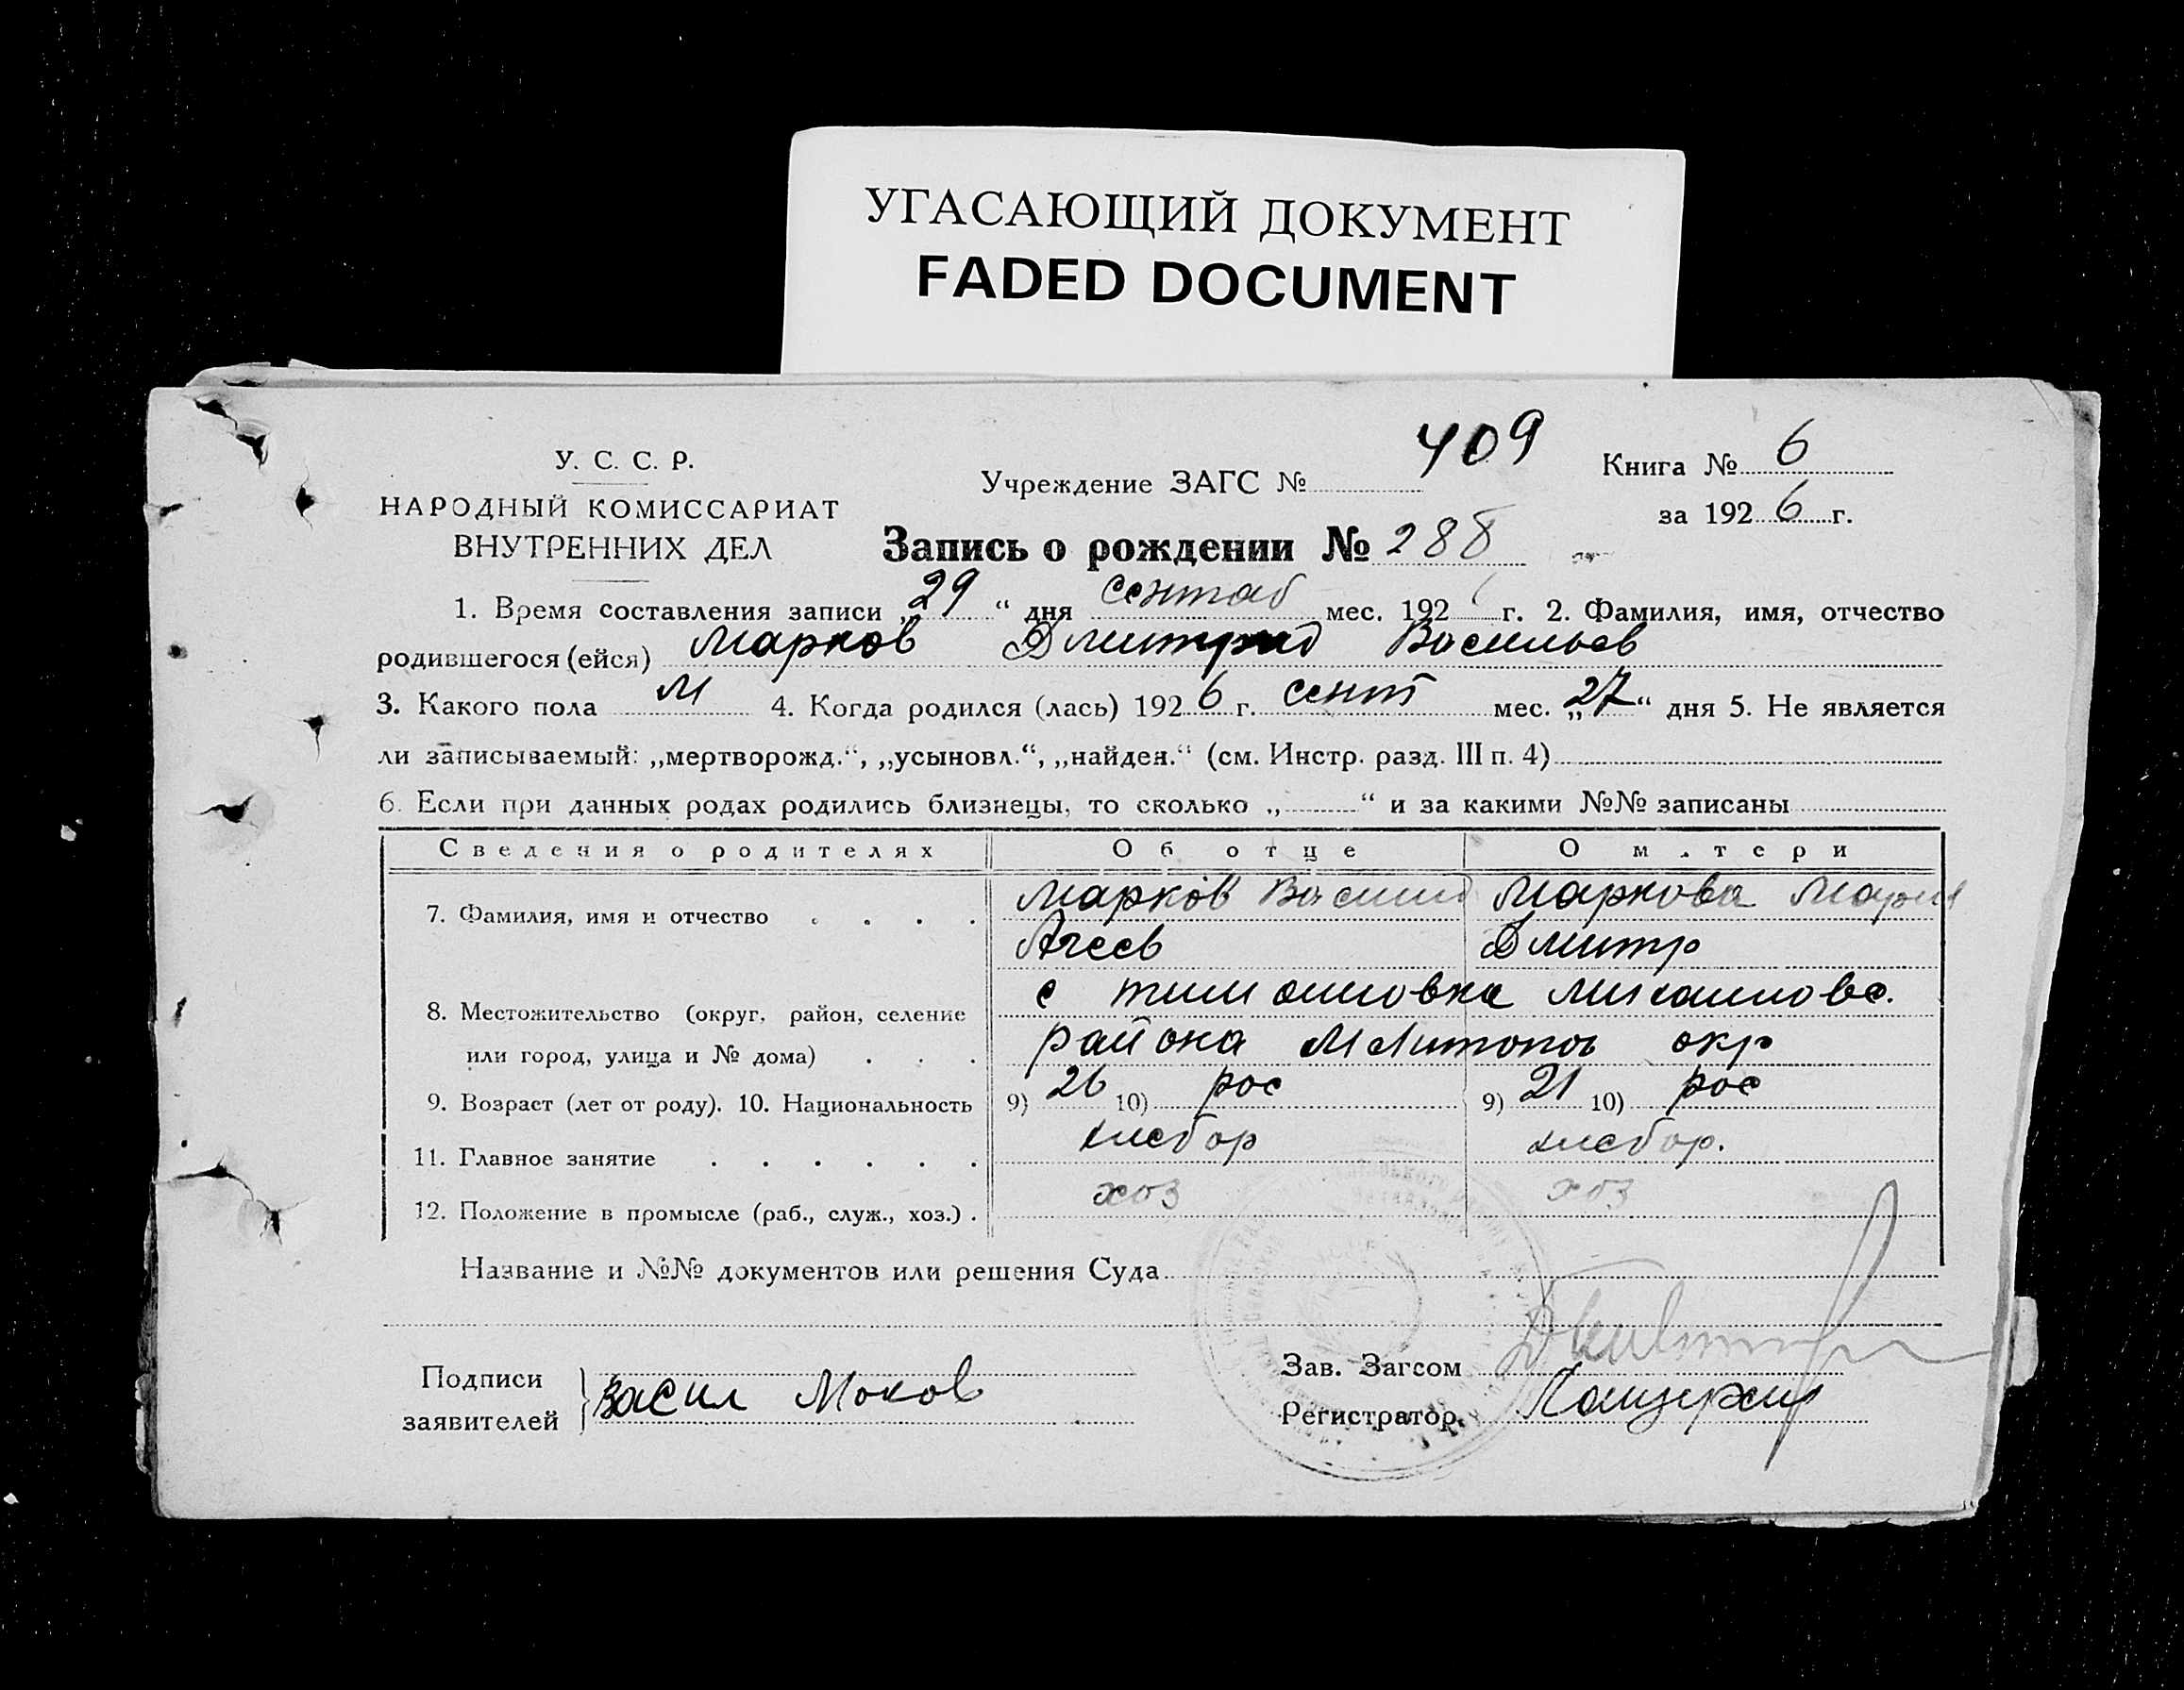 УГАСАЮЩИЙ ДОКУМЕНТ
FADED DOCUMENT
У. С. С. Р.
НАРОДНЫЙ КОМИССАРИАТ
ВНУТРЕННИХ ДЕЛ
409
Учреждение ЗАГС №
Книга № 6
за 1926 г.
Запись о рождении № 288
1. Время составления записи „29“ дня сентяб мес. 192 г. 2. Фамилия, имя, отчество
родившегося (ейся) Марков Дмитрий Васильев
3. Какого пола М 4. Когда родился (лась) 1926 г. сент мес. „27“ дня 5. Не является
ли записываемый: „мертворожд.“, „усыновл.“, „найден.“ (см. Инстр. разд. III п. 4)
6. Если при данных родах родились близнецы, то сколько „ “ и за какими №№ записаны
Сведения о родителях Об отце О м.тери
7. Фамилия, имя и отчество Марков Васили Маркова Мария
Агеев Дмитр
8. Местожительство (округ, район, селение с Тимошовка Михайловс.
или город, улица и № дома) района Мелитопол окр
9. Возраст (лет от роду). 10. Национальность 9) 26 10) рос 9) 21 10) рос
11. Главное занятие хлебор хлебор.
12. Положение в промысле (раб., служ., хоз.) хоз хоз
Название и №№ документов или решения Суда
Подписи
заявителей Васил
Зав. Загсом
Регистратор